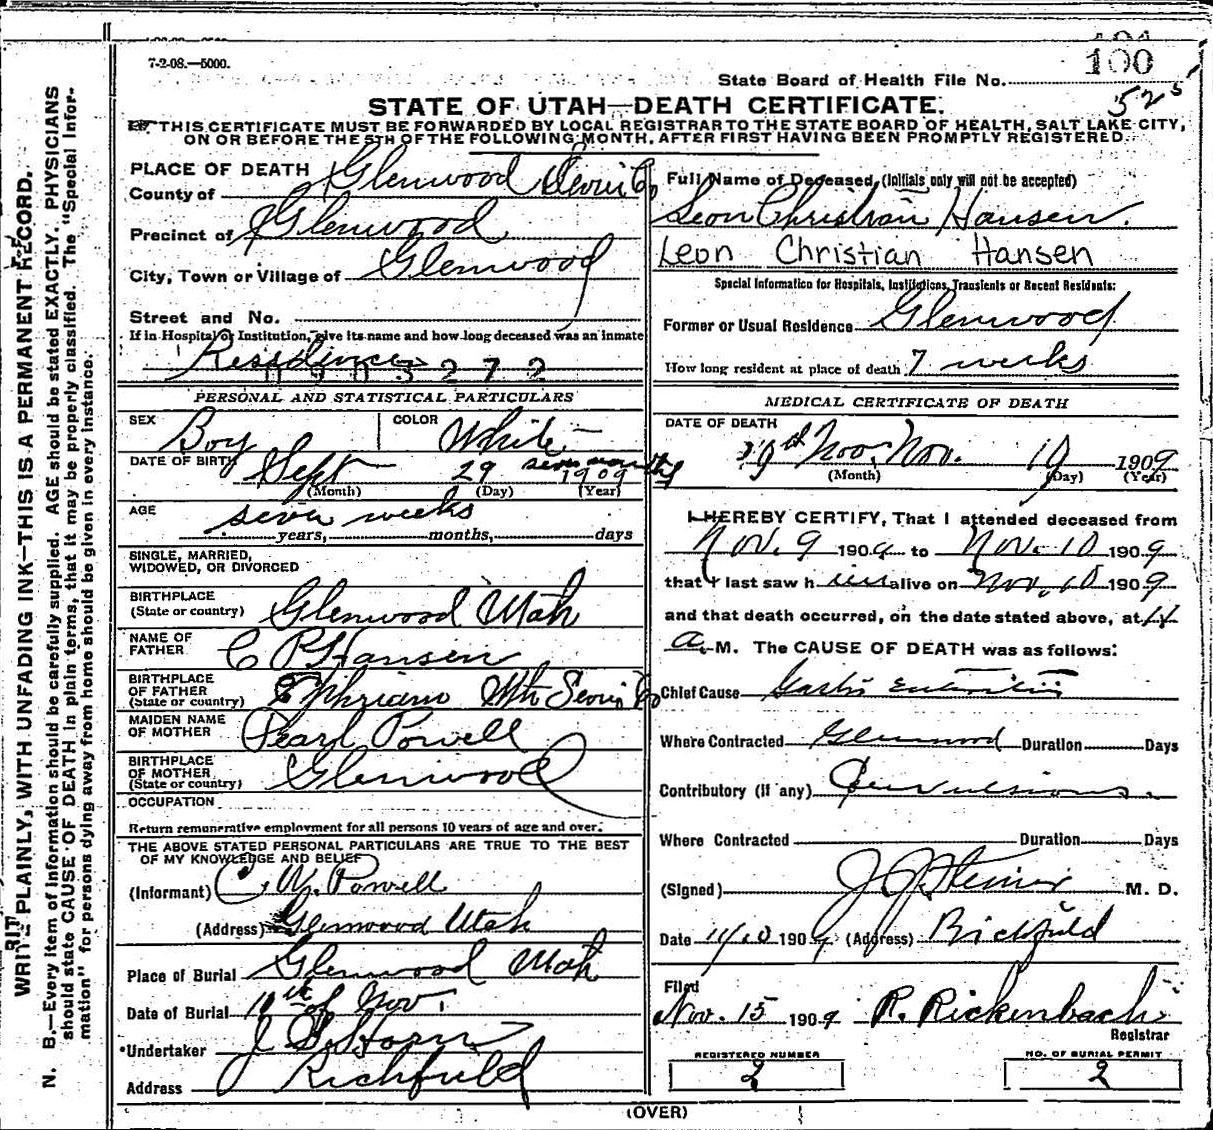 7-2-08.—5000.
100
State Board of Health File No.
525
STATE OF UTAH—DEATH CERTIFICATE.
THIS CERTIFICATE MUST BE FORWARDED BY LOCAL REGISTRAR TO THE STATE BOARD OF HEALTH, SALT LAKE CITY,
ON OR BEFORE THE 5TH OF THE FOLLOWING MONTH, AFTER FIRST HAVING BEEN PROMPTLY REGISTERED.
WRITE PLAINLY, WITH UNFADING INK—THIS IS A PERMANENT RECORD.
N. B.—Every item of information should be carefully supplied. AGE should be stated EXACTLY. PHYSICIANS
should state CAUSE OF DEATH in plain terms, that it may be properly classified. The "Special Infor-
mation" for persons dying away from home should be given in every instance.
PLACE OF DEATH
County of Glenwood Sevier Co
Precinct of Glenwood
City, Town or Village of Glenwood
Street and No.
If in Hospital or Institution, give its name and how long deceased was an inmate
Residence
272
PERSONAL AND STATISTICAL PARTICULARS
SEX Boy COLOR White
DATE OF BIRTH Sept 29 1909
(Month) (Day) (Year)
AGE seven weeks
years, months, days
SINGLE, MARRIED,
WIDOWED, OR DIVORCED
BIRTHPLACE
(State or country) Glenwood Utah
NAME OF
FATHER C P Hansen
BIRTHPLACE
OF FATHER
(State or country) Ephriam Uth Sevier Co
MAIDEN NAME
OF MOTHER Pearl Powell
BIRTHPLACE
OF MOTHER
(State or country) Glenwood
OCCUPATION
Return remunerative employment for all persons 10 years of age and over.
THE ABOVE STATED PERSONAL PARTICULARS ARE TRUE TO THE BEST
OF MY KNOWLEDGE AND BELIEF
(Informant) C. W. Powell
(Address) Glenwood Utah
Place of Burial Glenwood Utah
Date of Burial of Nov.
Undertaker J S. Horn
Address Richfield
Full Name of Deceased, (Initials only will not be accepted)
Leon Christian Hansen.
Leon Christian Hansen
Special Information for Hospitals, Institutions, Transients or Recent Residents:
Former or Usual Residence Glenwood
How long resident at place of death 7 weeks
MEDICAL CERTIFICATE OF DEATH
DATE OF DEATH
Nov. Nov. 10 1909
(Month) (Day) (Year)
I HEREBY CERTIFY, That I attended deceased from
Nov. 9 1909 to Nov. 10 1909
that I last saw him alive on Nov. 10 1909
and that death occurred, on the date stated above, at
a. M. The CAUSE OF DEATH was as follows:
Chief Cause Gastro enteritis
Where Contracted Glenwood Duration Days
Contributory (if any) Convulsions.
Where Contracted Duration Days
(Signed) J J Steiner M. D.
Date 11/10 1909 (Address) Richfield
Filed
Nov. 15 1909 R. Rickenbach
Registrar
REGISTERED NUMBER
2
NO. OF BURIAL PERMIT
2
(OVER)